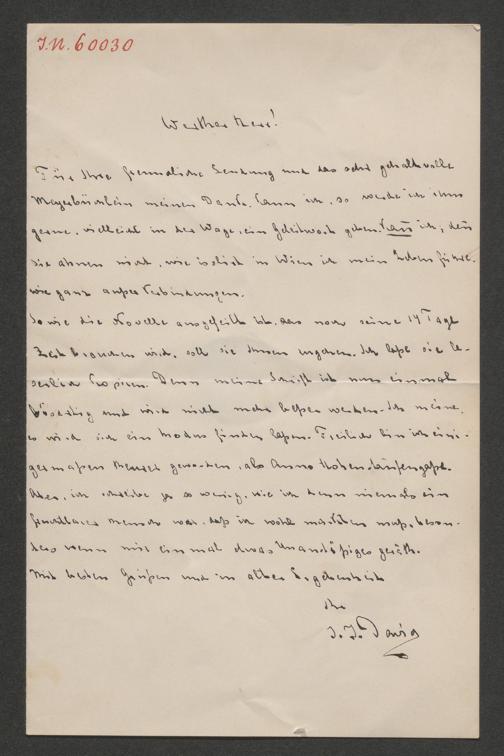 I.N. 60030
Werther Herr!
Für Ihre freundliche Sendung und das sehr gehaltvolle
meinen Dank. Kann ich, so werde ich ihm
gerne, vielleicht in der Wage, ein Geleitwort geben. Kann ich; denn
Sie ahnen nicht, wie in Wien ich mein Leben führe,
wie ganz außer Verbindungen.
Sowie die Novelle ausgefeilt ist, das noch seine 14 Tage
Zeit brauchen wird, soll sie Ihnen zugehen. Ich lasse sie le-
serlich copiren. Denn meine Schrift ist nun einmal
bösartig und wird nicht mehr besser werden. Ich meine,
es wird sich ein Modus finden lassen. Freilich bin ich eini-
germaßen theurer geworden, als Anno Hohenstaufengasse.
Aber, ich schreibe ja so wenig, wie ich denn niemals ein
fruchtbarer Mensch war, daß ich wohl muß, beson-
ders wenn mir einmal etwas Anständiges geräth.
Mit besten Grüßen und in alter Ergebenheit
Ihr
J. J. David